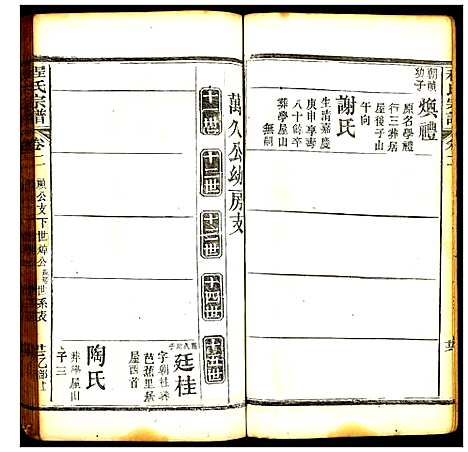 朝禎
幼子
煥禮
原名學禮
行三葬居
屋後子山
午向
謝氏
生清嘉慶
庚申享壽
八十餘卒
葬學屋山
無嗣
萬久公幼房支
十一世
十二世
十三世
十四世
十五世
廷桂
字朝桂葬
芭蕉里居
屋西首
陶氏
葬學屋山
子三
程氏宗譜
卷二
公支下世
公
世系表